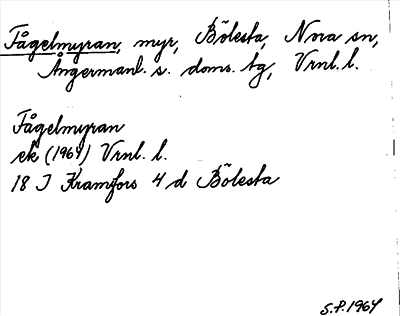 Fågelmyran, myr, Bölesta, Nora sn,
Ångermanl. s. doms. tg, Vrnl. l.
Fågelmyran
ek (1964) Vrnl. l.
18 I Kramfors 4 d Bölesta
S.P. 1964